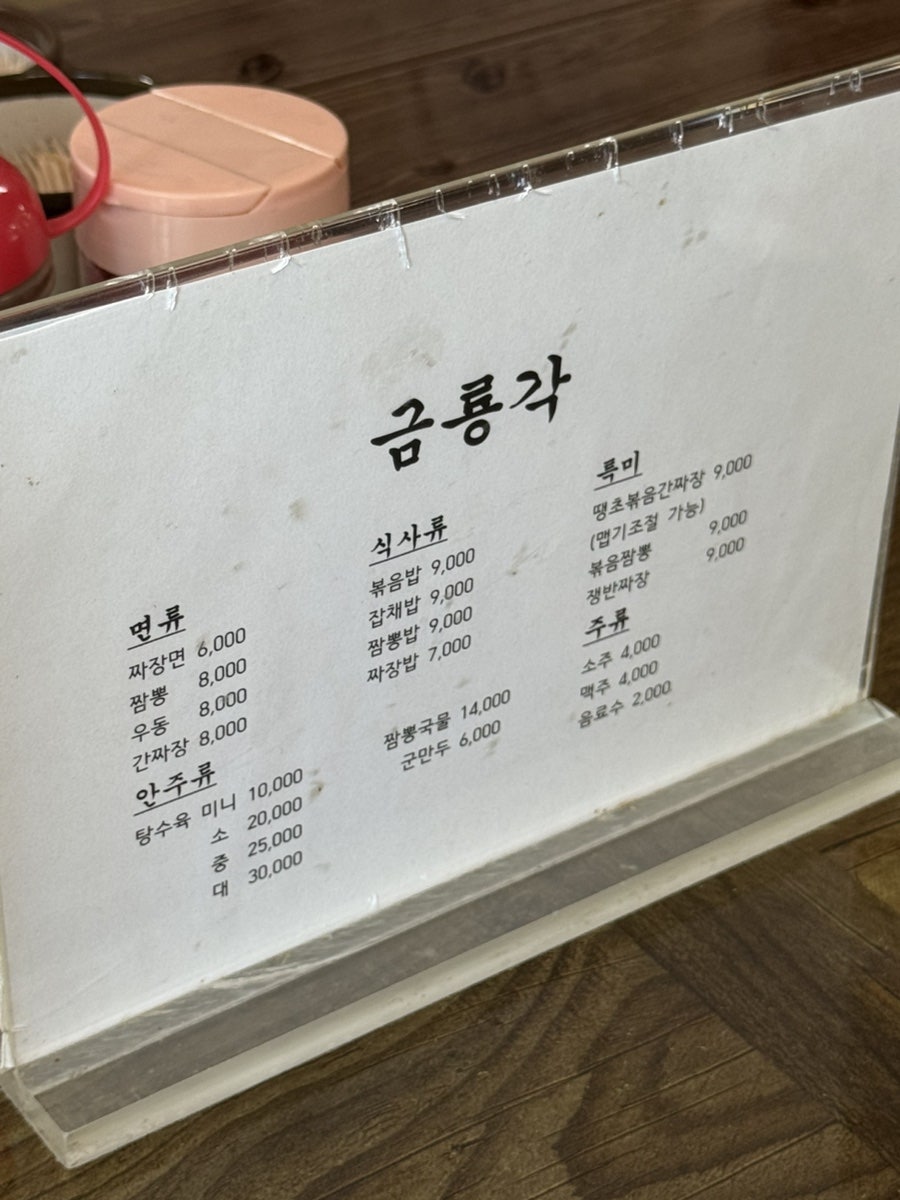 금룡각
면류
짜장면 6,000
짬뽕 8,000
우동 8,000
간짜장 8,000
안주류
탕수육 미니 10,000
소 20,000
중 25,000
대 30,000
식사류
볶음밥 9,000
잡채밥 9,000
짬뽕밥 9,000
짜장밥 7,000
짬뽕국물 14,000
군만두 6,000
특미
땡초볶음간짜장 9,000
(맵기조절 가능)
볶음짬뽕 9,000
쟁반짜장 9,000
주류
소주 4,000
맥주 4,000
음료수 2,000